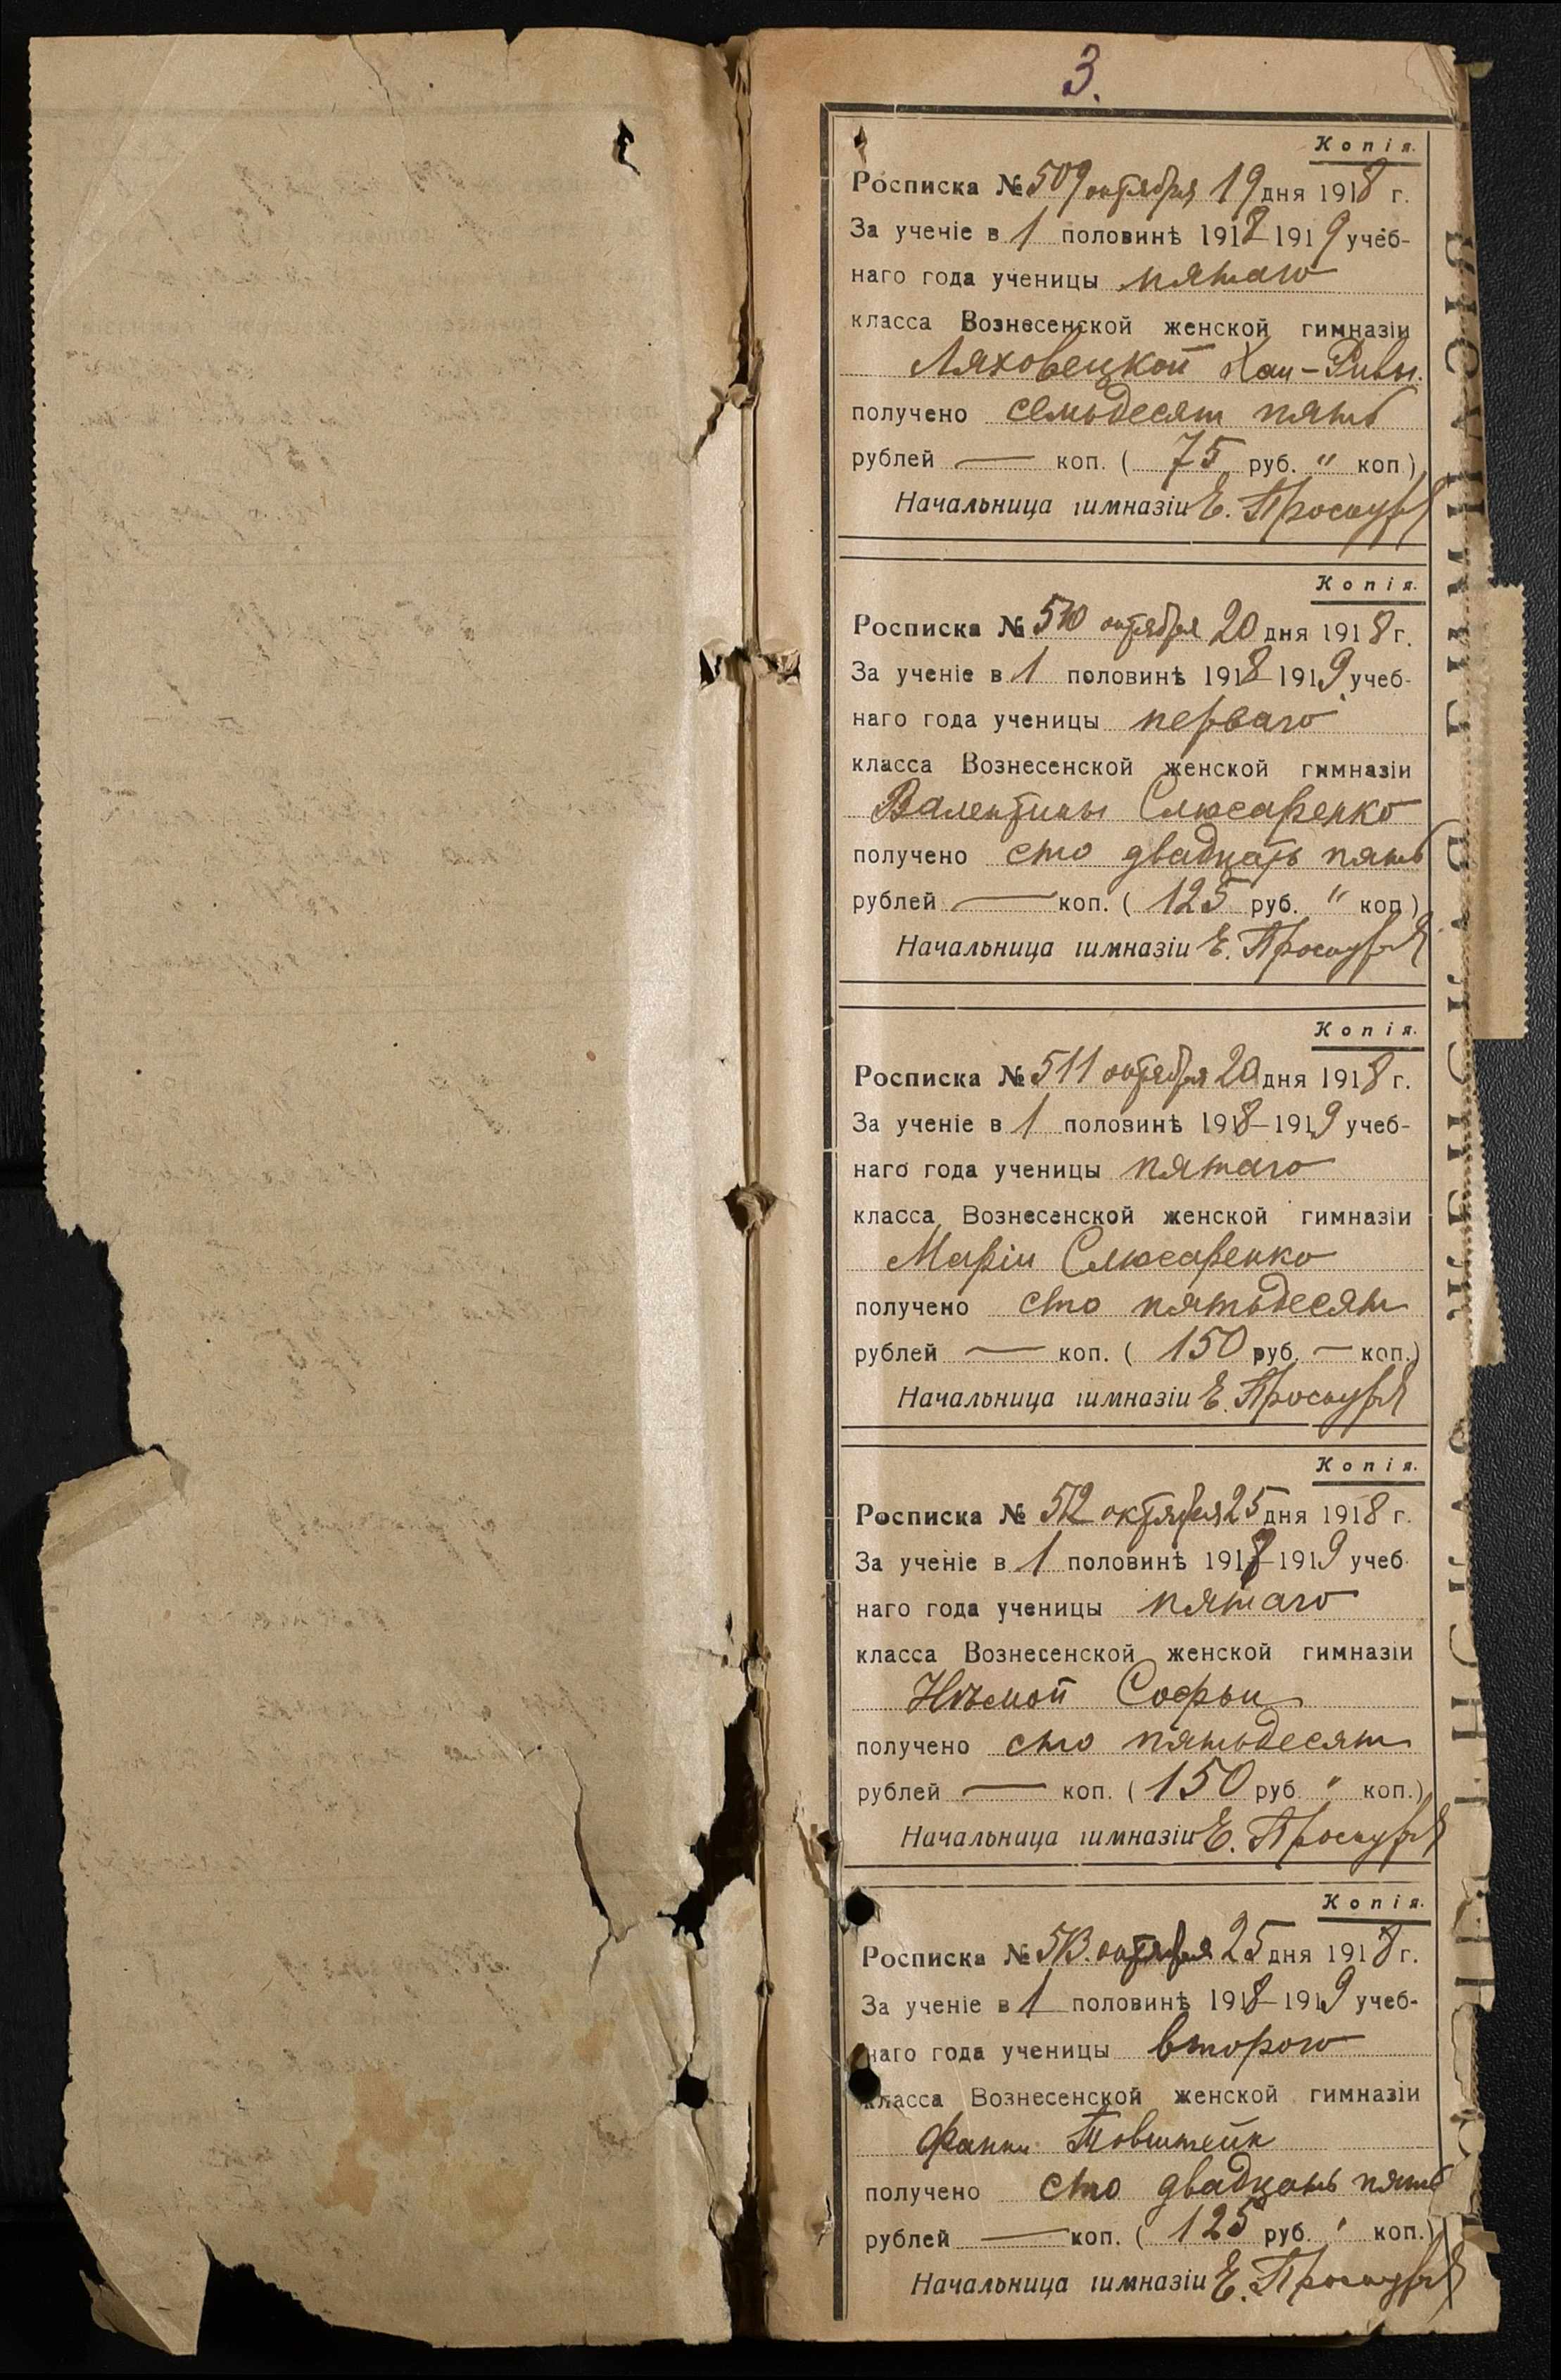 3.
Копія.
Росписка № 509 октября 19 дня 1918 г.
За ученіе в 1 половинѣ 1918-1919 учеб-
наго года ученицы пятаго
класса Вознесенской женской гимназіи
Ляховецкой Хаи-Ривы
получено семьдесят пять
рублей — коп. ( 75 руб. " коп.)
Начальница гимназіи Е.
Копія.
Росписка № 510 октября 20 дня 1918 г.
За ученіе в 1 половинѣ 1918-1919 учеб-
наго года ученицы перваго
класса Вознесенской женской гимназіи
Валентины Слюсаренко
получено сто двадцать пять
рублей — коп. ( 125 руб. " коп.)
Начальница гимназіи Е.
Копія.
Росписка № 511 октября 20 дня 1918 г.
За ученіе в 1 половинѣ 1918-1919 учеб-
наго года ученицы пятаго
класса Вознесенской женской гимназіи
Маріи Слюсаренко
получено сто пятьдесят
рублей — коп. ( 150 руб. — коп.)
Начальница гимназіи Е.
Копія.
Росписка № 512 октября 25 дня 1918 г.
За ученіе в 1 половинѣ 1918-1919 учеб-
наго года ученицы пятаго
класса Вознесенской женской гимназіи
Нѣмой Софьи
получено сто пятьдесят
рублей — коп. ( 150 руб. " коп.)
Начальница гимназіи Е.
Копія.
Росписка № 513. октября 25 дня 1918 г.
За ученіе в 1 половинѣ 1918-1919 учеб-
наго года ученицы второго
класса Вознесенской женской гимназіи
Фанни Товштейн
получено сто двадцать пять
рублей — коп. ( 125 руб. ' коп.)
Начальница гимназіи Е.